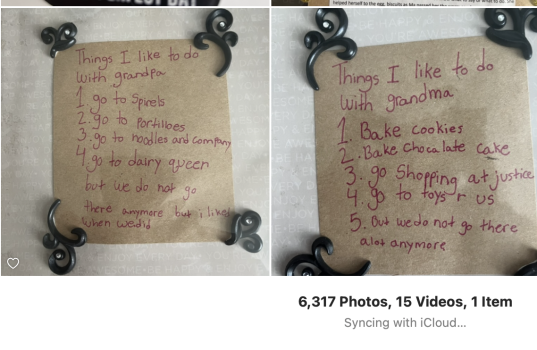 helped herself to the egg, biscuits as
Things I like to do
with grandpa
1. go to Spirels
2. go to Portilloes
3. go to noodles and company
4. go to dairy queen
but we do not go
there anymore but i liked
when we did
Things I like to do
with grandma
1. Bake cookies
2. Bake Chocalate cake
3. go Shopping at justice
4. go to toys r us
5. but we do not go there
alot anymore
6,317 Photos, 15 Videos, 1 Item
Syncing with iCloud...